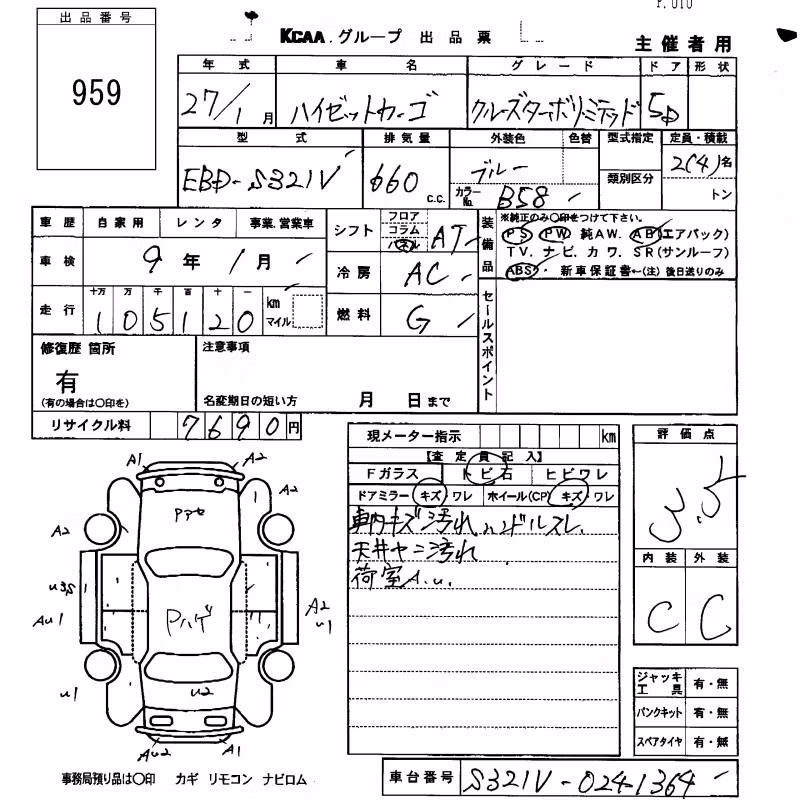 出品番号
959
KCAA.グループ 出品票
主催者用
年式 車名 グレード ドア 形状
27/1月 ハイゼットカーゴ クルーズターボリミテッド 5D
型式 排気量 外装色 色替 型式指定 定員・積載
EBD-S321V 660 c.c. ブルー カラーNo. B58 類別区分 2(4)名 トン
車歴 自家用 レンタ 事業.営業車
車検 9年1月
走行 十万 万 千 百 十 一 km マイル
105120
シフト フロア コラム パネル AT
冷房 AC
燃料 G
装備品 ※純正のみ〇印をつけて下さい。
PS PW 純AW. AB(エアバック)
TV. ナビ. カワ. SR(サンルーフ)
ABS・ 新車保証書←(注) 後日送りのみ
セールスポイント
修復歴 箇所
有
(有の場合は〇印を)
注意事項
名変期日の短い方 月 日まで
リサイクル料 7690円
現メーター指示 km
【査定員記入】
Fガラス トビ石 ヒビワレ
ドアミラー キズ ワレ ホイール(CP) キズ ワレ
車内キズ汚れ ハンドルスレ
天井ヤニ汚れ
荷室A.u.
評価点
3.5
内装 外装
C C
A1 A2
Pアセ A2
A2
u3,S
Au1 Pハゲ A2 u1
u1 u2
Au2 A1
ジャッキ工具 有・無
パンクキット 有・無
スペアタイヤ 有・無
事務局預り品は〇印 カギ リモコン ナビロム
車台番号 S321V-0241364